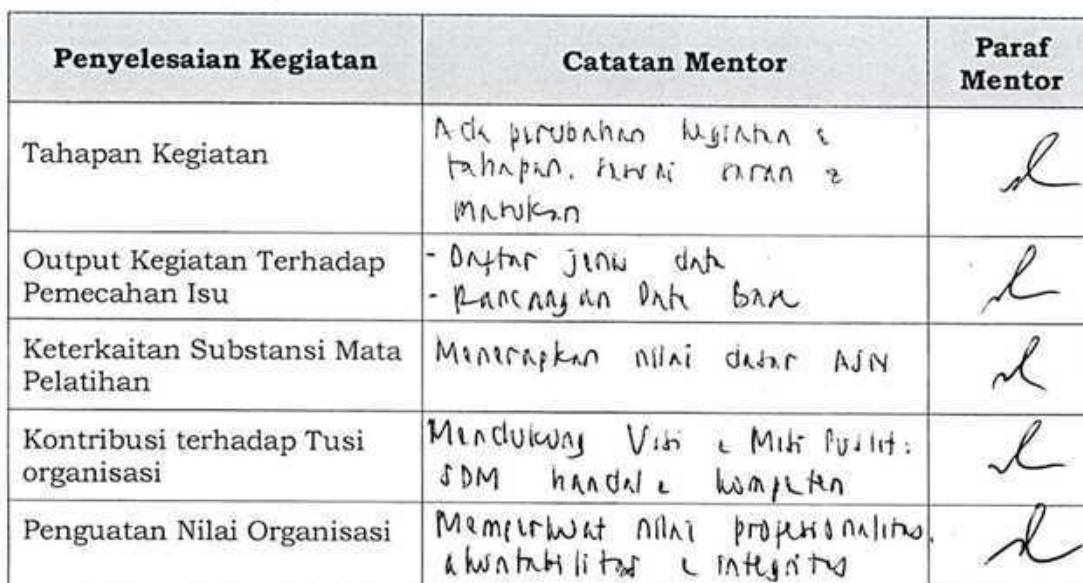 Penyelesaian Kegiatan
Catatan Mentor
Paraf
Mentor
Tahapan Kegiatan
Ada perubahan kegiatan &
tahapan. sesuai saran &
masukan
Output Kegiatan Terhadap
Pemecahan Isu
- Daftar jenis data
- Rancangan Data Base
Keterkaitan Substansi Mata
Pelatihan
Menerapkan nilai dasar ASN
Kontribusi terhadap Tusi
organisasi
Mendukung Visi & Misi Puslit:
SDM handal & kompeten
Penguatan Nilai Organisasi
Memperkuat nilai profesionalitas,
akuntabilitas & integritas